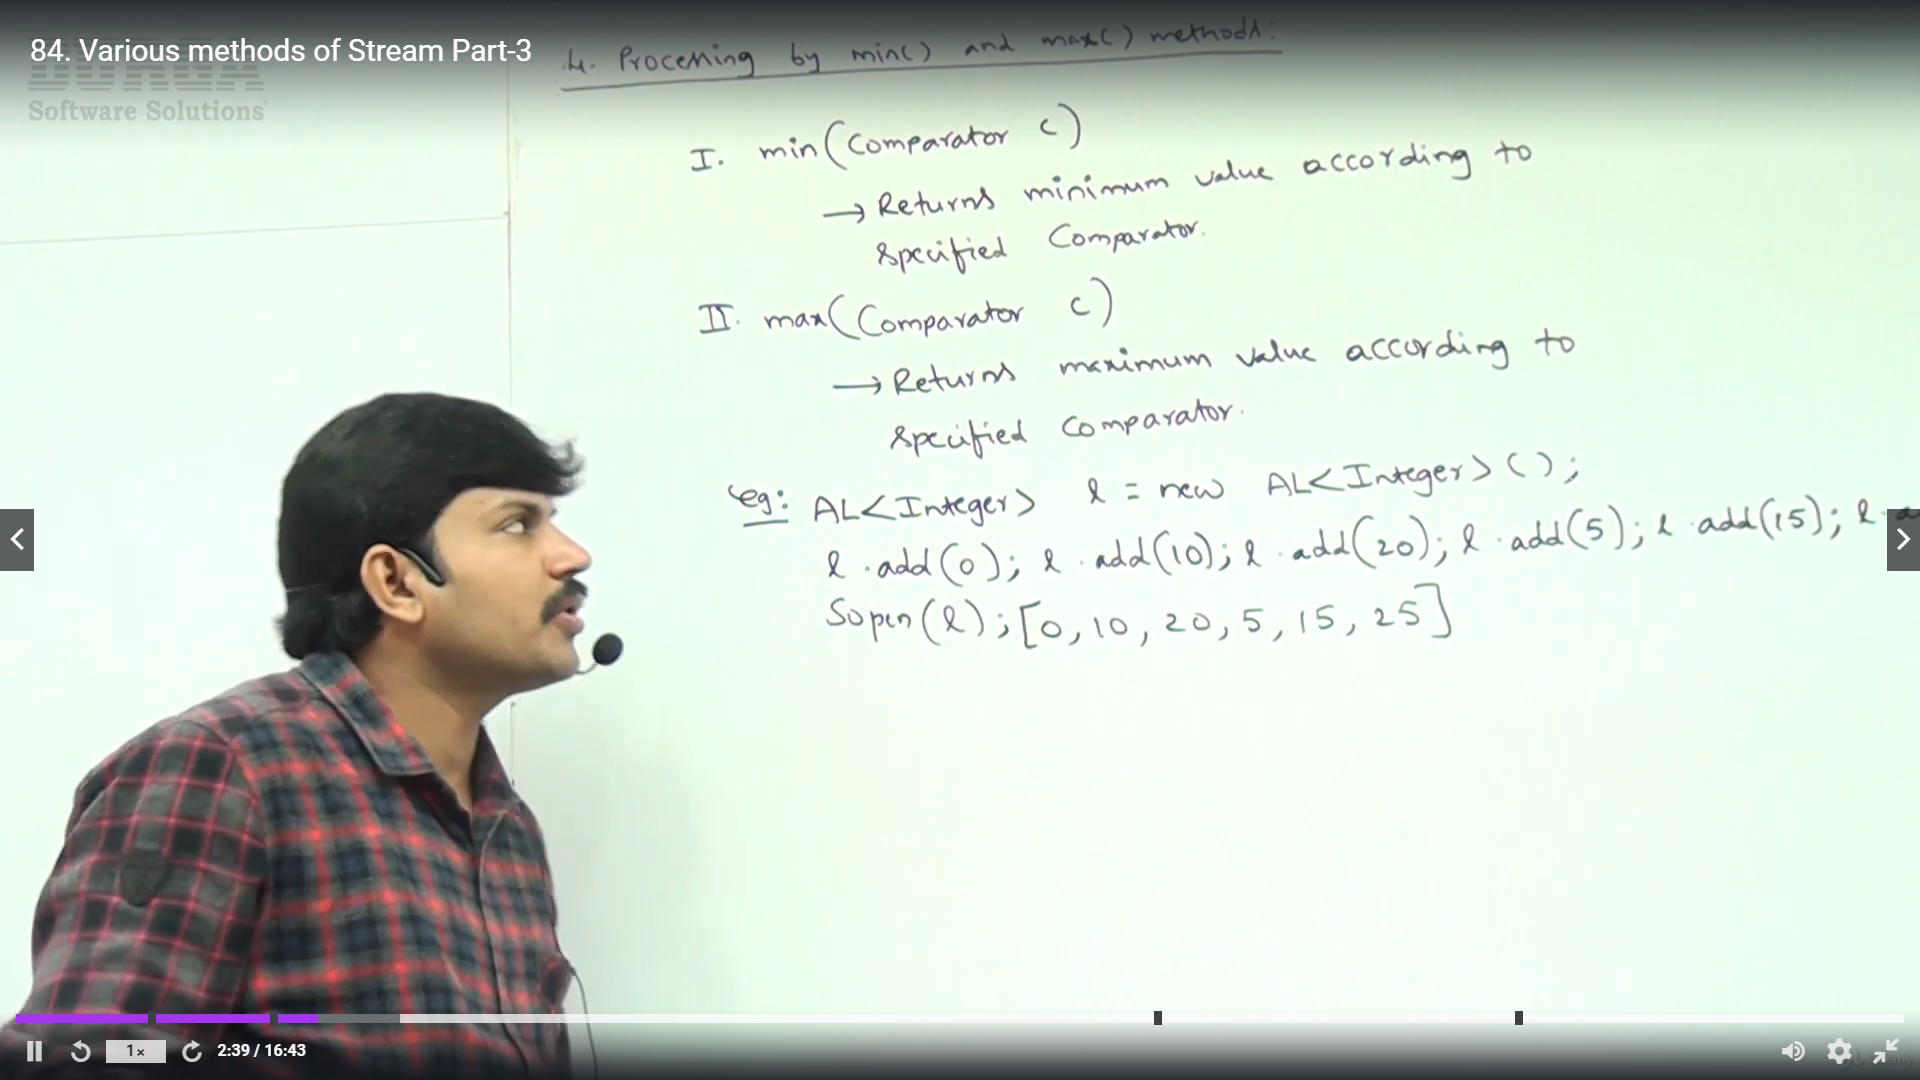 84. Various methods of Stream Part-3
DURGA
Software Solutions
4. Processing by min() and max() methods:
I. min(Comparator c)
→ Returns minimum value according to
specified Comparator.
II. max(Comparator c)
→ Returns maximum value according to
specified Comparator.
eg: AL<Integer> l = new AL<Integer>();
l.add(0); l.add(10); l.add(20); l.add(5); l.add(15); l.a
Sopln(l); [0, 10, 20, 5, 15, 25]
1×
2:39 / 16:43